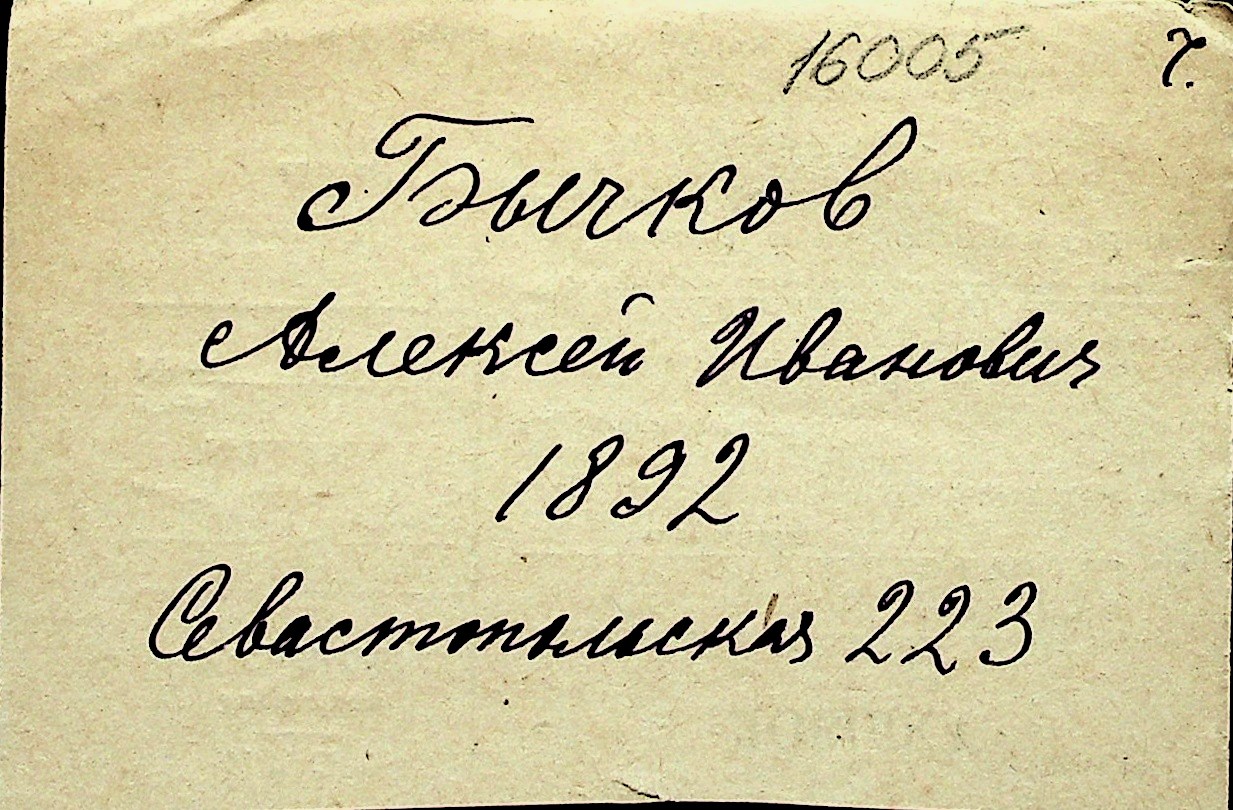 16005 7.
Бычков
Алексей Иванович
1892
Севастопольская 223